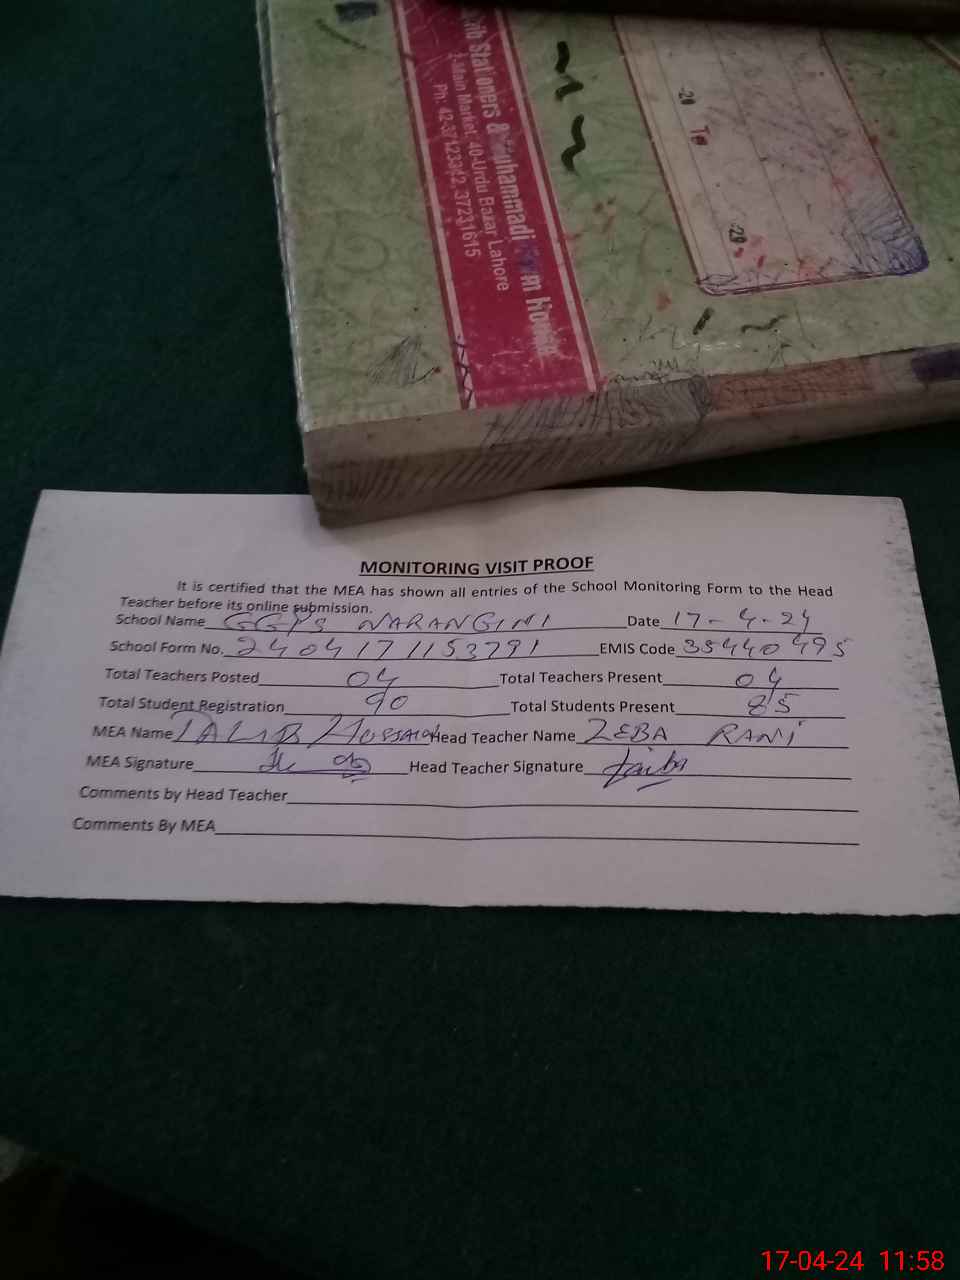 Stationers & Muhammadi Form House
Main Market, 40-Urdu Bazar Lahore
Ph: 42-37123342, 37231615
-20 To
-20
MONITORING VISIT PROOF
It is certified that the MEA has shown all entries of the School Monitoring Form to the Head
Teacher before its online submission.
School Name GGPS NARANGINI Date 17-4-24
School Form No. 2404171153791 EMIS Code 35440495
Total Teachers Posted 04 Total Teachers Present 04
Total Student Registration 90 Total Students Present 85
MEA Name TALIB HUSSAIN Head Teacher Name ZEBA RANI
MEA Signature Head Teacher Signature
Comments by Head Teacher
Comments By MEA
17-04-24 11:58